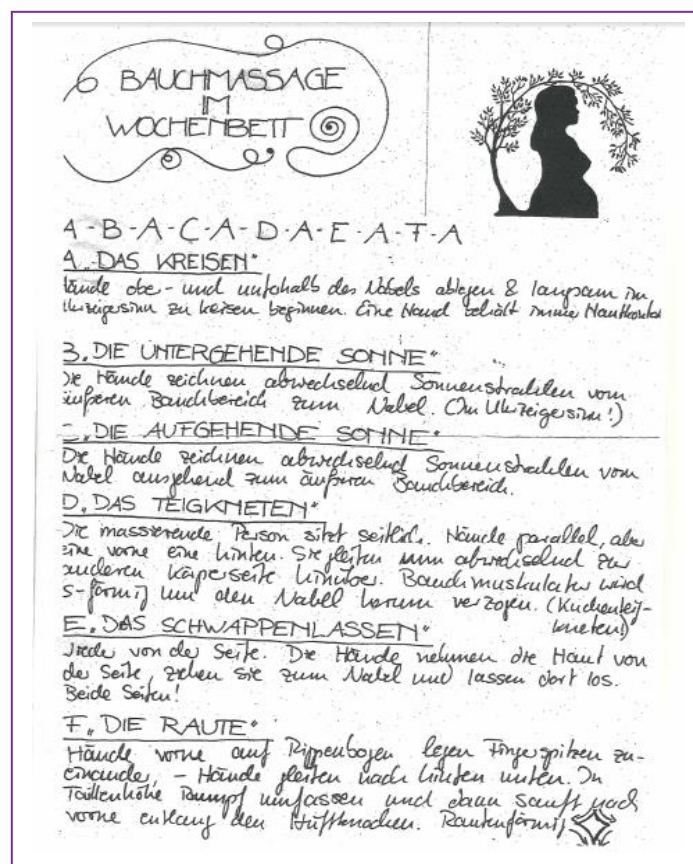 BAUCHMASSAGE
IM
WOCHENBETT
A-B-A-C-A-D-A-E-A-F-A
A „DAS KREISEN“
Hände ober- und unterhalb des Nabels ablegen & langsam im
Uhrzeigersinn zu kreisen beginnen. Eine Hand behält immer Hautkontakt
B. „DIE UNTERGEHENDE SONNE“
Die Hände zeichnen abwechselnd Sonnenstrahlen vom
äußeren Bauchbereich zum Nabel. (Im Uhrzeigersinn!)
C. „DIE AUFGEHENDE SONNE“
Die Hände zeichnen abwechselnd Sonnenstrahlen vom
Nabel ausgehend zum äußeren Bauchbereich.
D. „DAS TEIGKNETEN“
Die massierende Person sitzt seitlich. Hände parallel, aber
eine vorne eine hinten. Sie gleiten nun abwechselnd zur
anderen Körperseite hinüber. Bauchmuskulatur wird
S-förmig um den Nabel herum verzogen. (Kuchenteig-
kneten!)
E. „DAS SCHWAPPENLASSEN“
wieder von der Seite. Die Hände nehmen die Haut von
der Seite, ziehen sie zum Nabel und lassen dort los.
Beide Seiten!
F. „DIE RAUTE“
Hände vorne auf Rippenbogen legen Fingerspitzen zu-
einander, - Hände gleiten nach hinten unten. In
Taillenhöhe Rumpf umfassen und dann sanft nach
vorne entlang den Hüftknochen. Rautenförmig